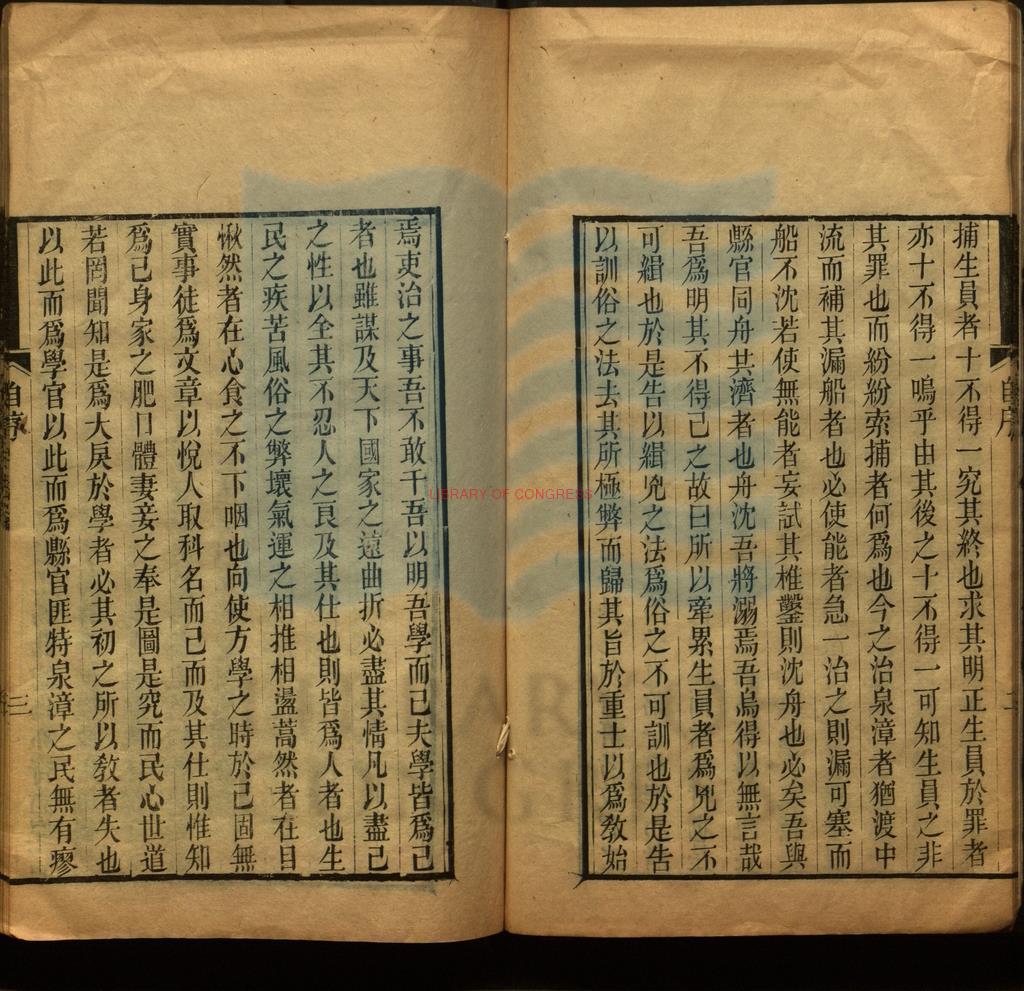 捕生員者十不得一究其終也求其明正生員於罪者
亦十不得一嗚乎由其後之十不得一可知生員之非
其罪也而紛紛索捕者何爲也今之治泉漳者猶渡中
流而補其漏船者也必使能者急一治之則漏可塞而
船不沈若使無能者妄試其椎鑿則沈舟也必矣吾與
縣官同舟共濟者也舟沈吾將溺焉吾烏得以無言哉
吾爲明其不得已之故曰所以牽累生員者爲兇之不
可緝也於是告以緝兇之法爲俗之不可訓也於是告
以訓俗之法去其所極弊而歸其旨於重士以爲教始
自序
二
焉吏治之事吾不敢干吾以明吾學而已夫學皆爲己
者也雖謀及天下國家之遠曲折必盡其情凡以盡己
之性以全其不忍人之良及其仕也則皆爲人者也生
民之疾苦風俗之弊壞氣運之相推相盪蒿然者在目
愀然者在心食之不下咽也向使方學之時於己固無
實事徒爲文章以悅人取科名而已而及其仕則惟知
爲己身家之肥口體妻妾之奉是圖是究而民心世道
若罔聞知是爲大戾於學者必其初之所以教者失也
以此而爲學官以此而爲縣官匪特泉漳之民無有瘳
自序
三
LIBRARY OF CONGRESS